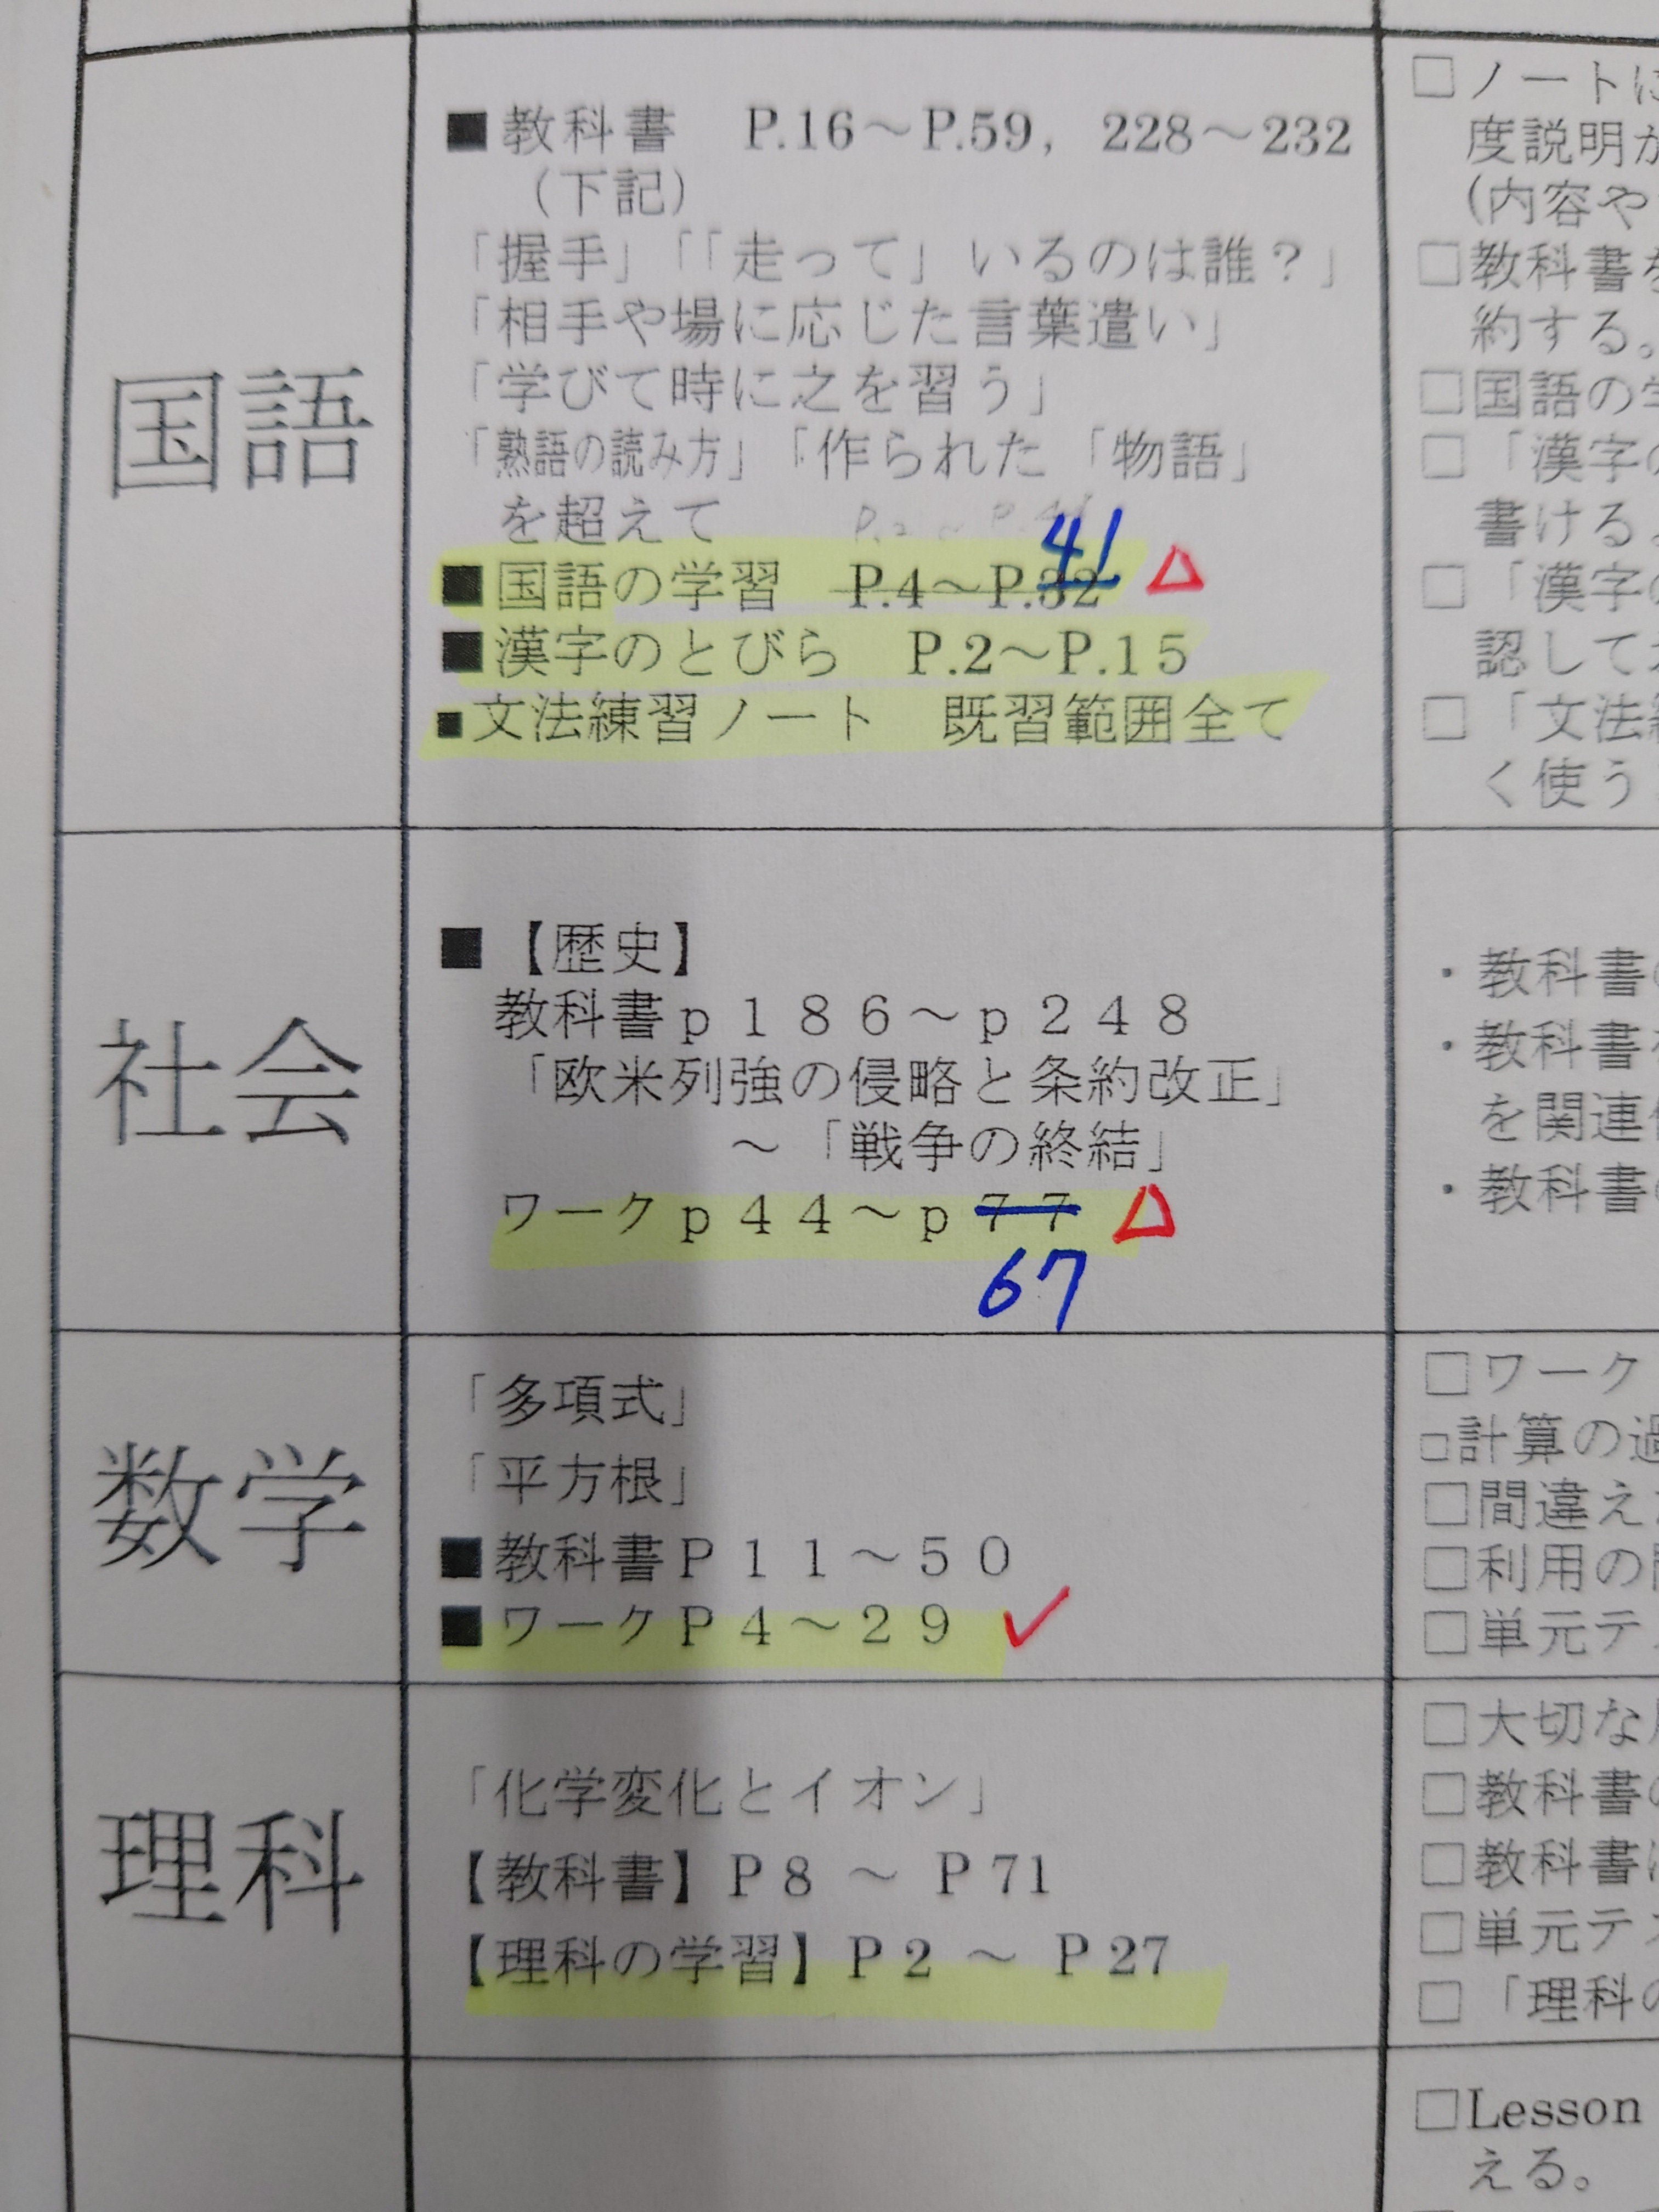 国語
■教科書 P.16～P.59, 228～232
（下記）
「握手」「「走って」いるのは誰？」
「相手や場に応じた言葉遣い」
「学びて時に之を習う」
「熟語の読み方」「作られた「物語」
を超えて
41
■国語の学習 P.4～P.32 △
■漢字のとびら P.2～P.15
■文法練習ノート 既習範囲全て
□ノートに
度説明か
(内容や
□教科書を
約する。
□国語の学
□「漢字の
書ける
□「漢字の
認して
□「文法練
く使う
社会
■【歴史】
教科書p186～p248
「欧米列強の侵略と条約改正」
～「戦争の終結」
ワークp44～p77 △
67
・教科書の
・教科書
を関連
・教科書の
数学
「多項式」
「平方根」
■教科書P11～50
■ワークP4～29 ✓
□ワーク
□計算の過
□間違え
□利用の問
□単元テ
理科
「化学変化とイオン」
【教科書】P8 ～ P71
【理科の学習】P2 ～ P27
□大切な
□教科書の
□教科書
□単元テ
□「理科の
□Lesson
える。